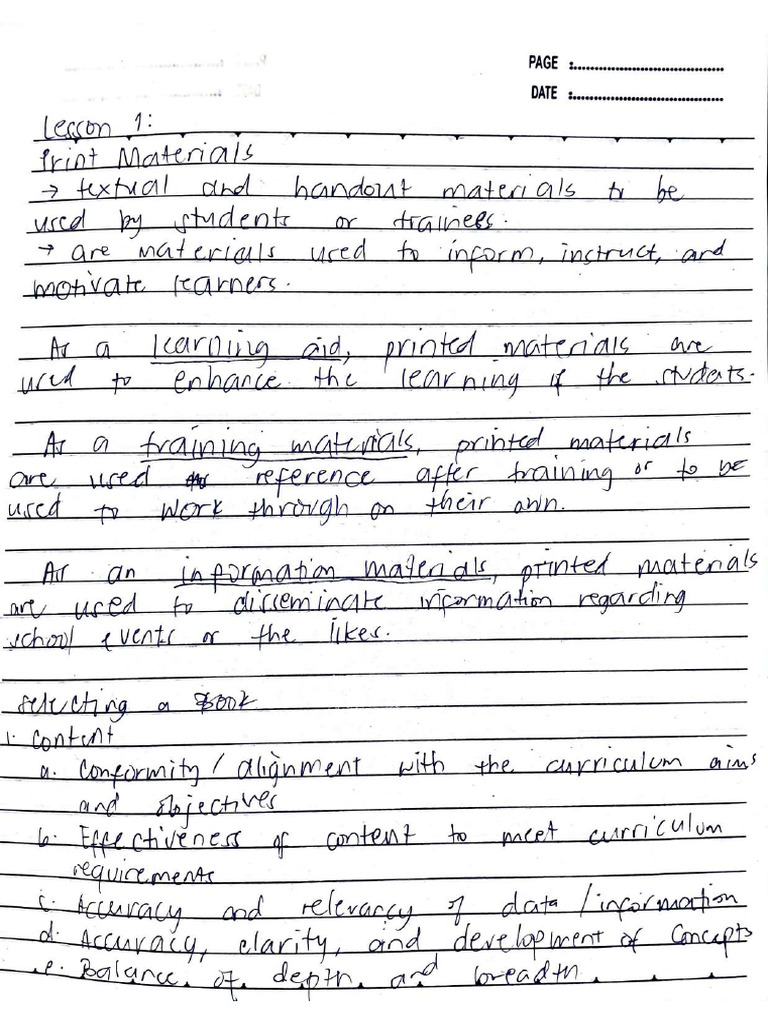 PAGE :....................................
DATE :....................................
Lesson 1:
Print Materials
→ textual and handout materials to be
used by students or trainees.
→ are materials used to inform, instruct, and
motivate learners.
As a learning aid, printed materials are
used to enhance the learning of the students.
As a training materials, printed materials
are used reference after training or to be
used to work through on their own.
As an information materials, printed materials
are used to disseminate information regarding
school events or the likes.
Selecting a Book
1. Content
a. Conformity / alignment with the curriculum aims
and objectives
b. Effectiveness of content to meet curriculum
requirements
c. Accuracy and relevancy of data / information
d. Accuracy, clarity, and development of concepts
e. Balance of depth and breadth